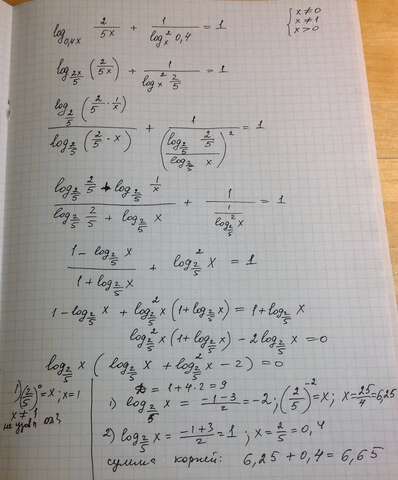 log_{0,4x} 2/5x + 1/log_x^2 0,4 = 1
{ x≠0
x≠1
x>0
log_{2x/5} (2/5x) + 1/log_x^2 2/5 = 1
log_{2/5} (2/5 · 1/x) / log_{2/5} (2/5 · x) + 1/(log_{2/5} 2/5 / log_{2/5} x)^2 = 1
log_{2/5} 2/5 + log_{2/5} 1/x / log_{2/5} 2/5 + log_{2/5} x + 1/(1/log_{2/5}^2 x) = 1
1 - log_{2/5} x / 1 + log_{2/5} x + log_{2/5}^2 x = 1
1 - log_{2/5} x + log_{2/5}^2 x (1 + log_{2/5} x) = 1 + log_{2/5} x
log_{2/5}^2 x (1 + log_{2/5} x) - 2 log_{2/5} x = 0
log_{2/5} x ( log_{2/5} x + log_{2/5}^2 x - 2 ) = 0
1) (2/5)^0 = x ; x = 1
x ≠ 1
не удовл ОДЗ
D = 1 + 4·2 = 9
1) log_{2/5} x = -1-3/2 = -2 ; (2/5)^{-2} = x ; x = 25/4 = 6,25
2) log_{2/5} x = -1+3/2 = 1 ; x = 2/5 = 0,4
сумма корней: 6,25 + 0,4 = 6,65